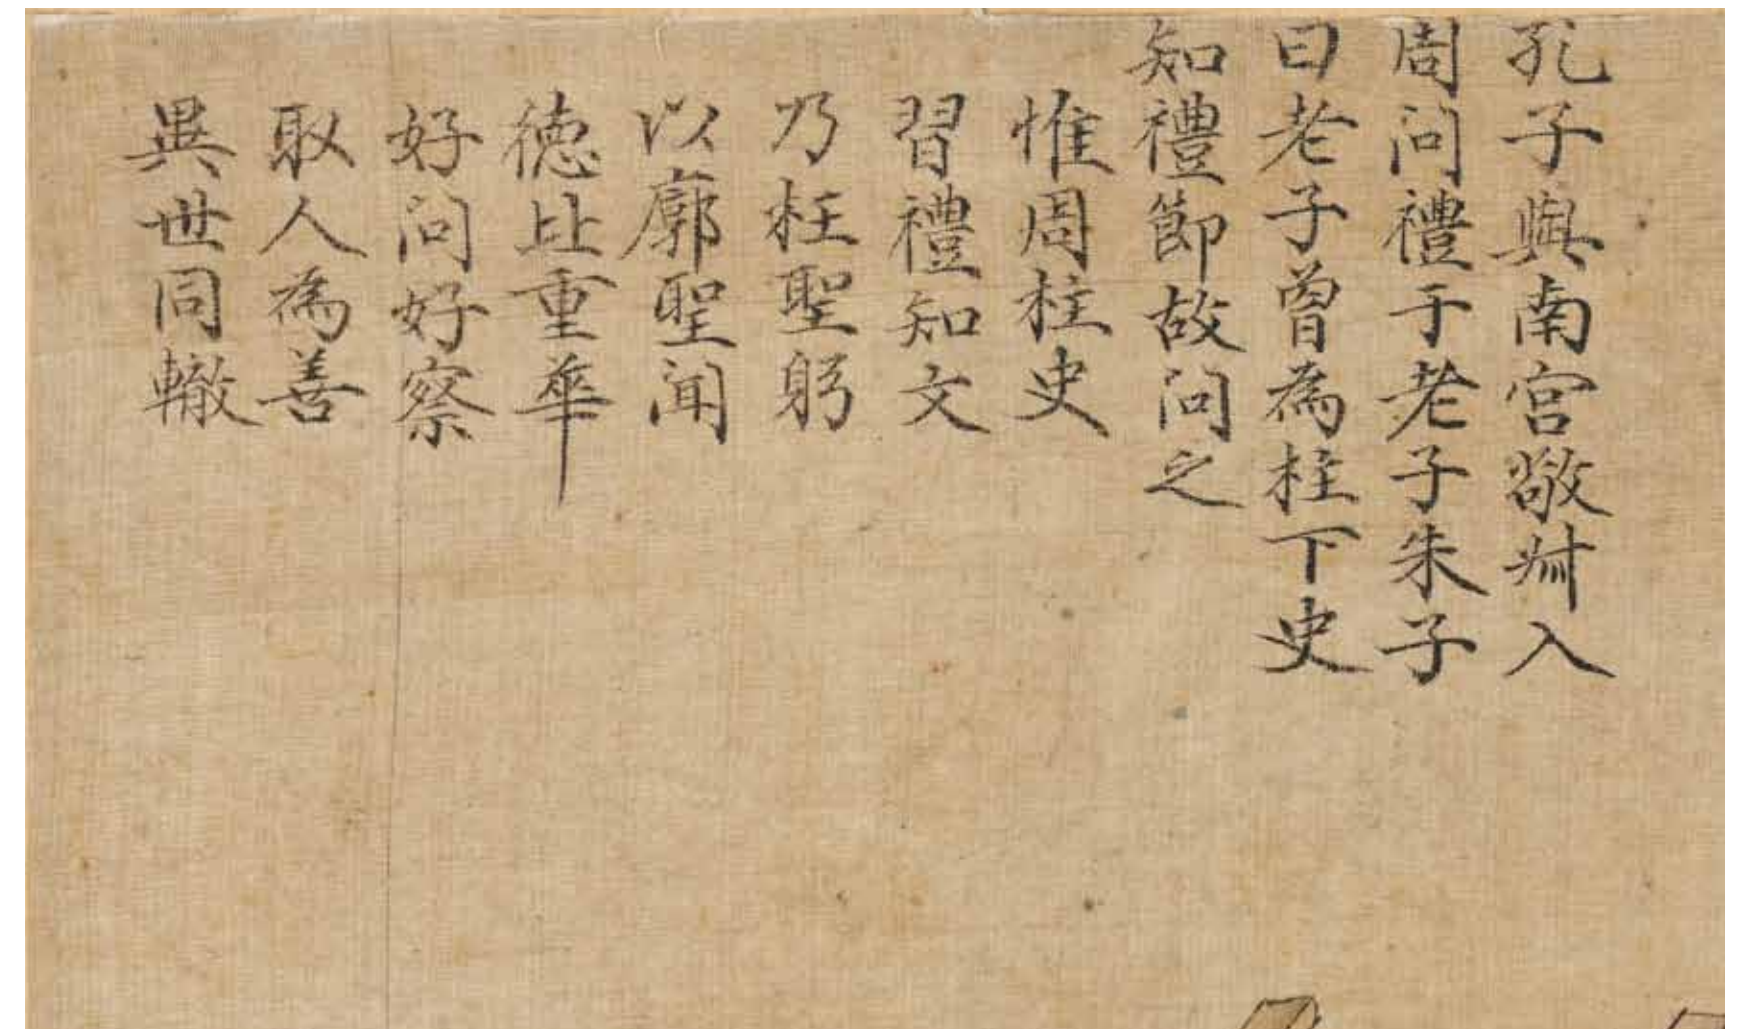 孔子與南宮敬叔入
周问禮于老子朱子
曰老子曾為柱下史
知禮節故问之
惟周柱史
習禮知文
乃枉聖躬
以廓聖闻
徳比重華
好问好察
取人為善
異世同轍